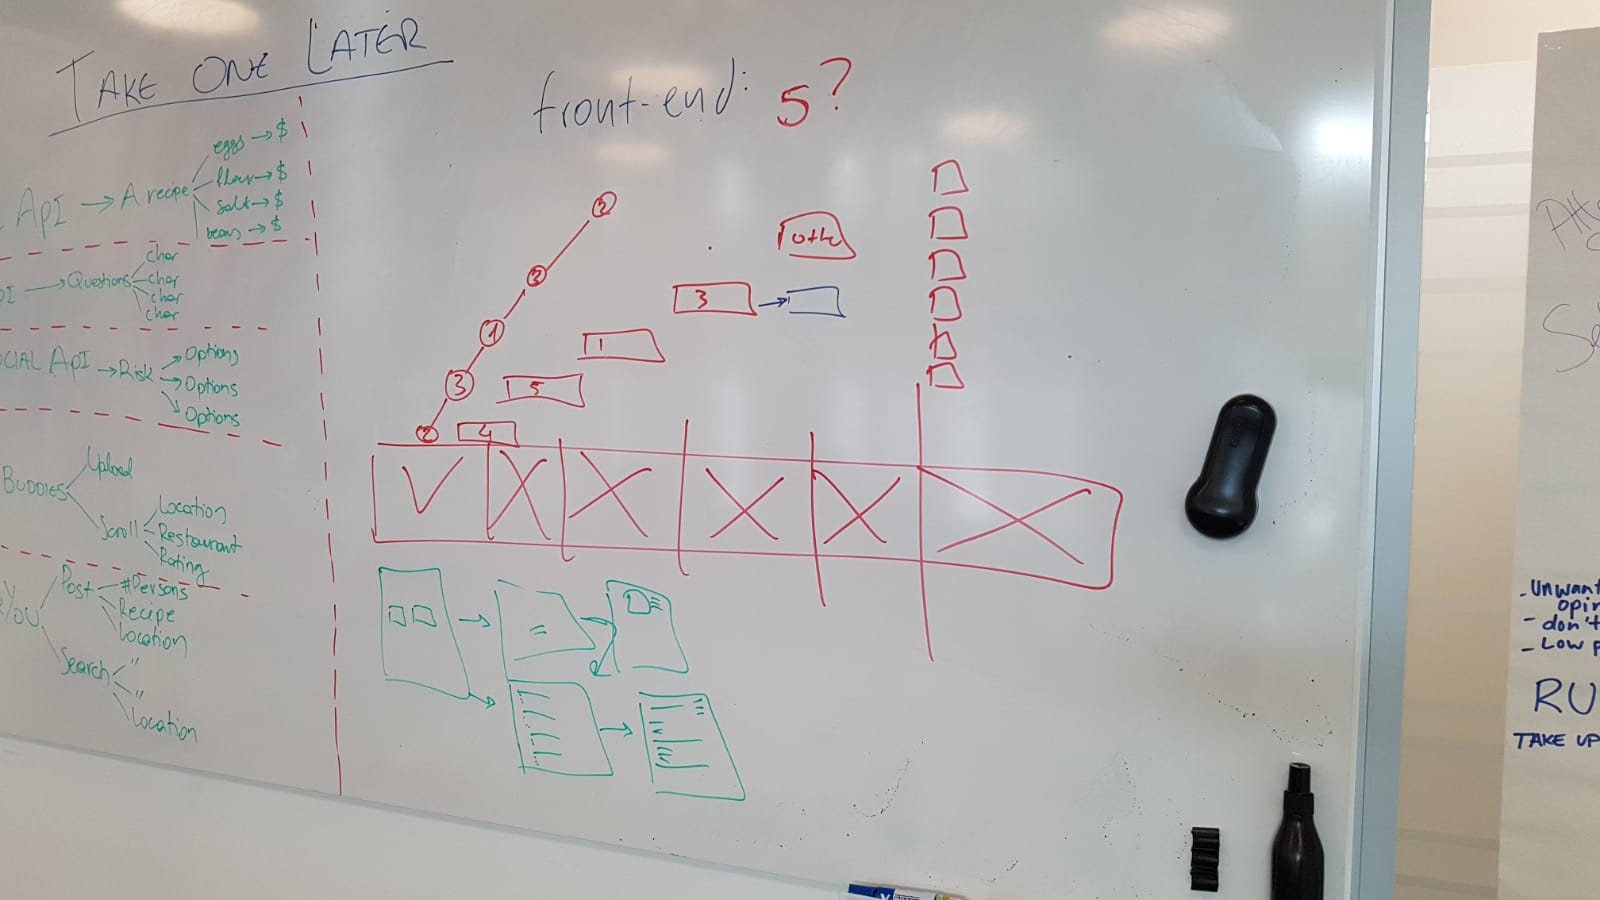 TAKE ONE LATER
front-end: 5?
API → A recipe
eggs → $
flour → $
salt → $
beans → $
→ Questions
char
char
char
char
CIAL API → Risk
→ Options
→ Options
→ Options
BUDDIES
Upload
Scroll
Location
Restaurant
Rating
You
Post
#Persons
Recipe
Location
Search
"
"
Location
2
2
1
3
2
3
1
5
4
V X X X X X
- Unwant
opin
- don't
- Low p
RU
TAKE UP